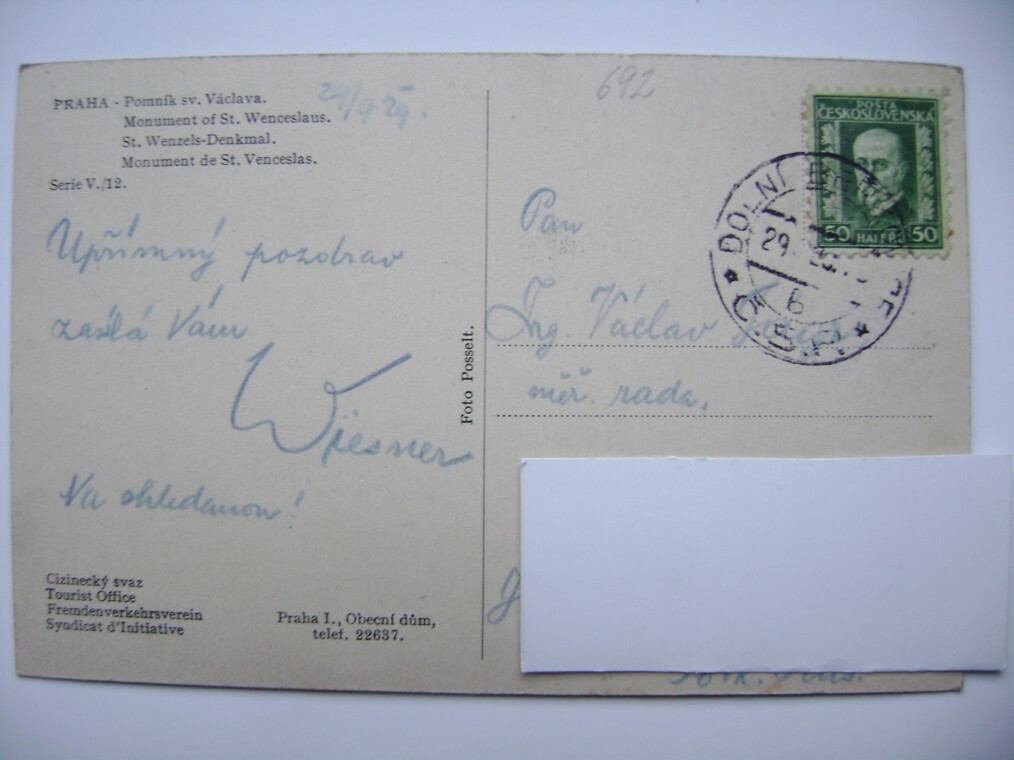 PRAHA - Pomník sv. Václava.
Monument of St. Wenceslaus.
St. Wenzels-Denkmal.
Monument de St. Venceslas.
Serie V./12.
29/9 29.
692
POSTA
ČESKOSLOVENSKÁ
50 HALÉŘŮ 50
DOLNÍ
29.
6
Upřímný pozdrav
zasílá Vám
Wiesner
Na shledanou!
Foto Posselt.
Pan
Ing. Václav
měř. rada,
Cizinecký svaz
Tourist Office
Fremdenverkehrsverein
Syndicat d'Initiative
Praha I., Obecní dům,
telef. 22637.